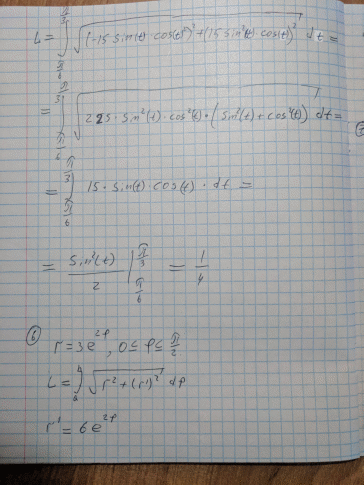 L = ∫_{π/6}^{π/3} √((-15·sin(t)·cos(t)²)² + (15 sin²(t)·cos(t))²) dt =
= ∫_{π/6}^{π/3} √(225·sin²(t)·cos²(t)·(sin²(t)+cos²(t))) dt =
= ∫_{π/6}^{π/3} 15·sin(t)·cos(t)·dt =
= sin²(t)/2 |_{π/6}^{π/3} = 1/4
⑥ r = 3e^{2φ}, 0 ≤ φ ≤ π/2
L = ∫ √(r² + (r')²) dφ
r' = 6e^{2φ}